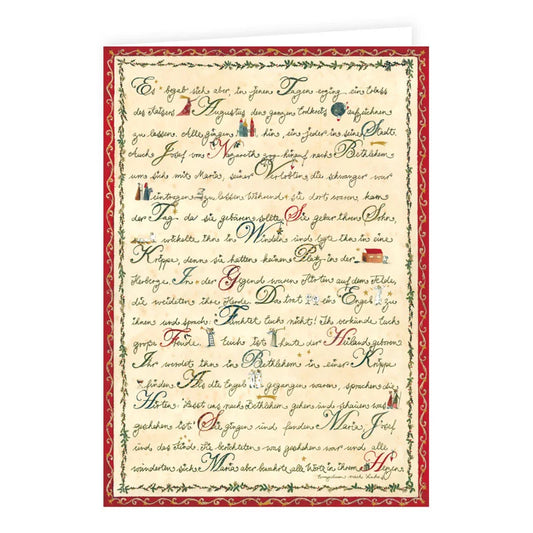 Es begab sich aber, in jenen Tagen erging ein Erlass
des Kaisers Augustus den ganzen Erdkreis aufzeichnen
zu lassen. Alle gingen hin, ein jeder in seine Stadt.
Auch Josef von Nazareth zog hinauf nach Bethlehem
um sich mit Maria, seiner Verlobten die schwanger war
eintragen zu lassen. Während sie dort waren, kam
der Tag da sie gebären sollte. Sie gebar ihren Sohn,
wickelte ihn in Windeln und legte ihn in eine
Krippe, denn sie hatten keinen Platz in der
Herberge. In der Gegend waren Hirten auf dem Felde,
die weideten ihre Herde. Da trat ein Engel zu
ihnen und sprach: Fürchtet euch nicht! Ich verkünde euch
große Freude, euch ist heute der Heiland geboren
Ihr werdet ihn in Bethlehem in einer Krippe
finden. Als die Engel gegangen waren, sprachen die
Hirten: Lasst uns nach Bethlehem gehen und schauen was
geschehen ist! Sie gingen und fanden Maria, Josef
und das Kind. Sie berichteten was geschehen war und alle
wunderten sich. Maria aber bewahrte alle Worte in ihrem Herzen
Evangelium nach Lukas